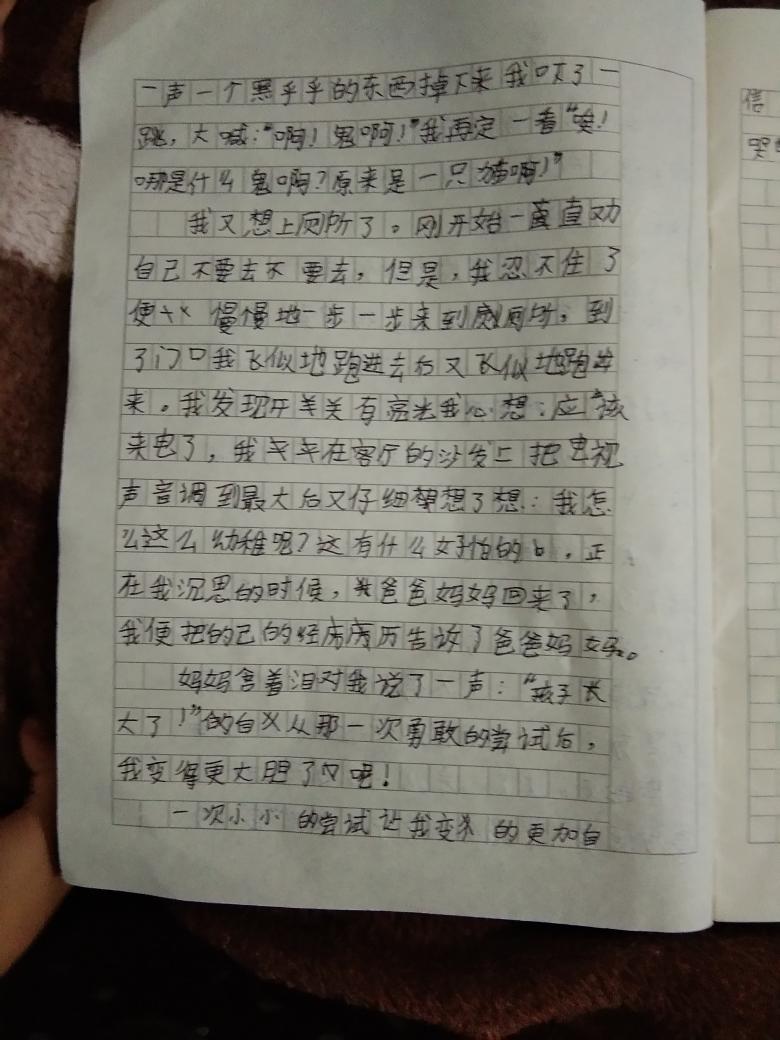 一声一个黑乎乎的东西掉下来我吓了一
跳，大喊："啊！鬼啊！"我再定一看"唉！
哪是什么鬼啊？原来是一只猫啊！"
我又想上厕所了。刚开始一直直劝
自己不要去不要去，但是，我忍不住了
便慢慢地一步一步来到厕所，到
了门口我飞似地跑进去后又飞似地跑出
来。我发现开关有亮光我心想：应该
来电了，我在客厅的沙发上把电视
声音调到最大后又仔细想了想：我怎
么这么幼稚呢？这有什么好怕的，正
在我沉思的时候，爸爸妈妈回来了，
我便把的己的经历告诉了爸爸妈妈。
妈妈含着泪对我说了一声："孩子长
大了！"的自从那一次勇敢的尝试后，
我变得更大胆了呢！
一次小小的尝试让我变的更加自
信
哭